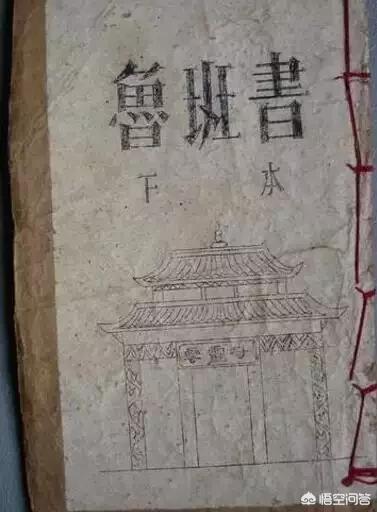 魯班書
下本
悟空问答